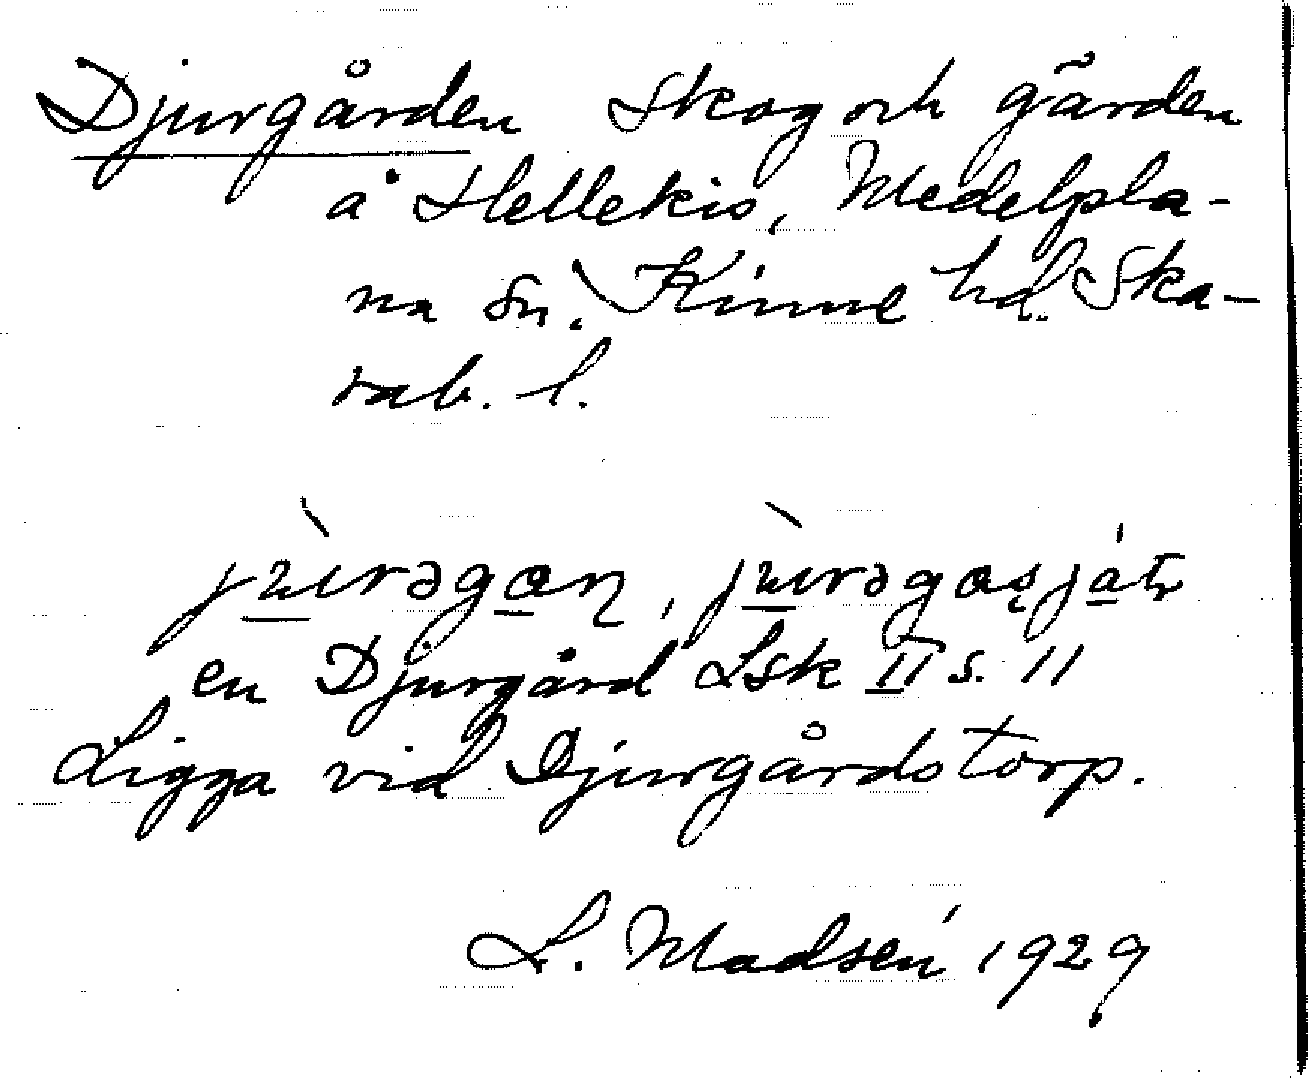 Djurgården Skog och gärden
å Hellekis, Medelpla-
na sn. Kinne hd. Ska-
rab. l.
en Djurgård Lsk II s. 11
Ligga vid Djurgårdstorp.
L. Madsén 1929